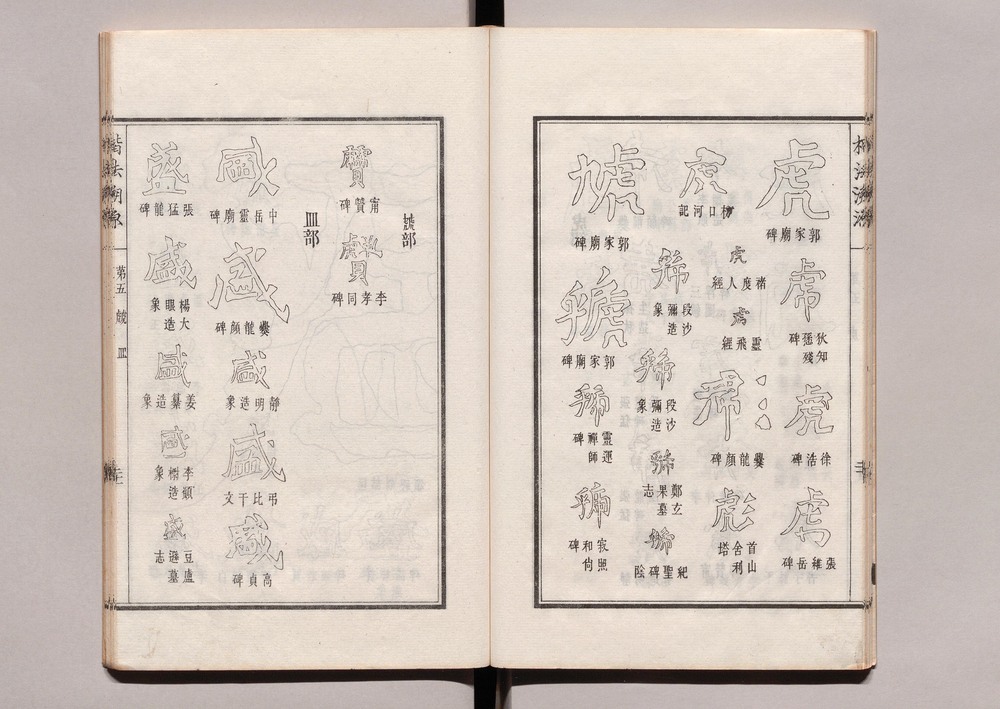 楷法溯源
虎
郭家廟碑
虎
狄知愻殘碑
虎
徐浩碑
虎
張維岳碑
虎
口河記
虎
褚度人經
虎
靈飛經
爨龍顏碑
彪
首山舍利塔
號
段沙彌造象
號
段沙彌造象
號
鄭玄果墓志
號
紀聖碑陰
虓
郭家廟碑
號
郭家廟碑
號
靈運禪師碑
號
寂照和尚碑
虤部
甯贊碑
李孝同碑
皿部
盛
中岳靈廟碑
盛
爨龍顏碑
盛
靜明造象
盛
弔比干文
盛
高貞碑
盛
張猛龍碑
盛
楊大眼造象
盛
姜纂造象
盛
李顯造象
盛
豆盧遜墓志
楷法溯源
第五 虤 皿